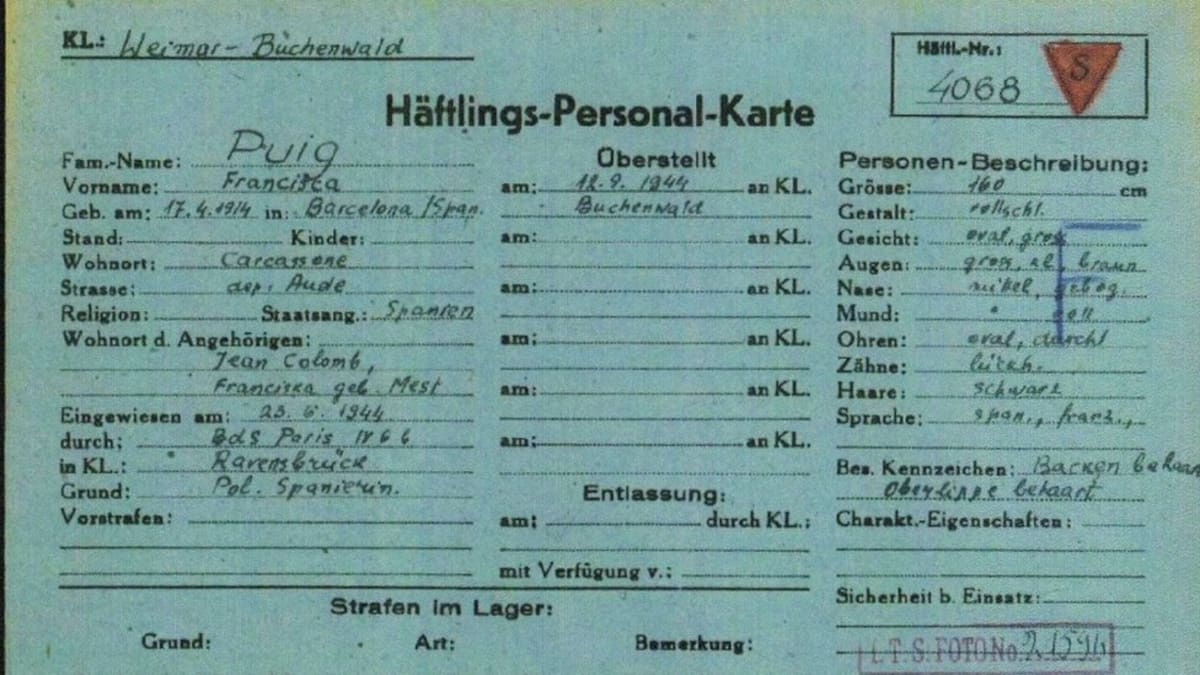 KL.: Weimar-Buchenwald
Häftl.-Nr.:
4068
S
Häftlings-Personal-Karte
Fam.-Name: Puig
Vorname: Francisca
Geb. am: 17.4.1914 in: Barcelona/Span.
Stand: Kinder:
Wohnort: Carcassone
Strasse: dep. Aude
Religion: Staatsang.: Spanien
Wohnort d. Angehörigen:
Jean Colomb,
Franciska geb. Mest
Eingewiesen am: 23. 6. 1944
durch: BdS Paris IV 6 b
in KL.: Ravensbrück
Grund: Pol. Spanierin.
Vorstrafen:
Überstellt
am: 12.9.1944 an KL.
Buchenwald
am: an KL.
am: an KL.
am: an KL.
am: an KL.
am: an KL.
Entlassung:
am: durch KL.:
mit Verfügung v.:
Personen-Beschreibung:
Grösse: 160 cm
Gestalt: vollschl.
Gesicht: oval, gross
Augen: gross, braun
Nase: gebog.
Mund: " voll
Ohren: oval,
Zähne:
Haare: schwarz
Sprache: span., franz.,
Bes. Kennzeichen: Backen behaar
Oberlippe behaart
Charakt.-Eigenschaften:
Sicherheit b. Einsatz:
Strafen im Lager:
Grund: Art: Bemerkung:
I.T.S. FOTO No.